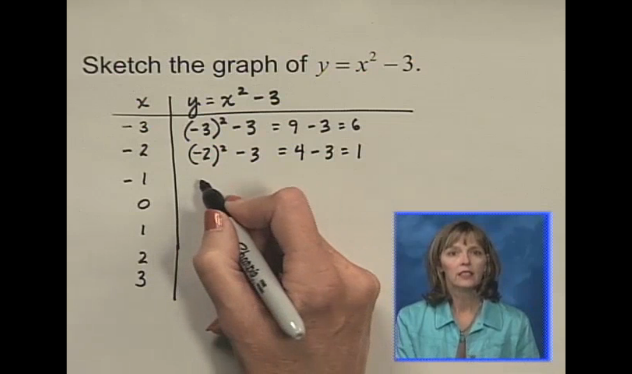 Sketch the graph of y = x² − 3.
x y = x² − 3
−3 (−3)² − 3 = 9 − 3 = 6
−2 (−2)² − 3 = 4 − 3 = 1
−1
0
1
2
3
Sharpie